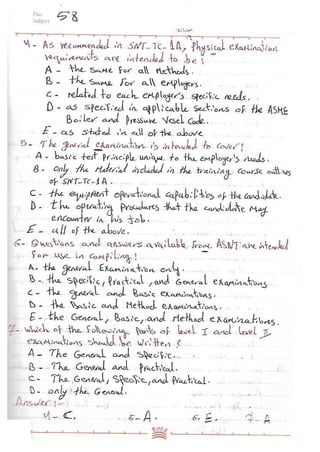 No:
Subject
58
4- As recommended in SNT-TC-1A, Physical examination
requirements are intended to be:
A - the same for all Methods.
B - the same for all employers.
C - related to each employer's specific needs.
D - as specified in applicable sections of the ASME
Boiler and Pressure Vesel Code.
E - as stated in all of the above
5- The general examination is intended to cover!
A - basic test principle unique to the employer's needs.
B - only the Material included in the training Course outlines
of SNT-TC-1A.
C - the equipment operational Capabilities of the candidate.
D - the operating Procedures that the candidate may
encounter in his job.
E - all of the above.
6- Questions and answers available from ASNT are intended
for use in compiling!
A. the general Examination only.
B - the specific, Practical, and General examinations
C - the general and Basic examinations.
D - the Basic and Method examinations.
E - the General, Basic, and Method examinations.
7- which of the following Parts of level I and level II
examinations should be written?
A - The General and Specific.
B - The General and Practical.
C - The General, Specific, and Practical.
D - only the General.
Answer:-
4- C. 5- A. 6- E. 7- A